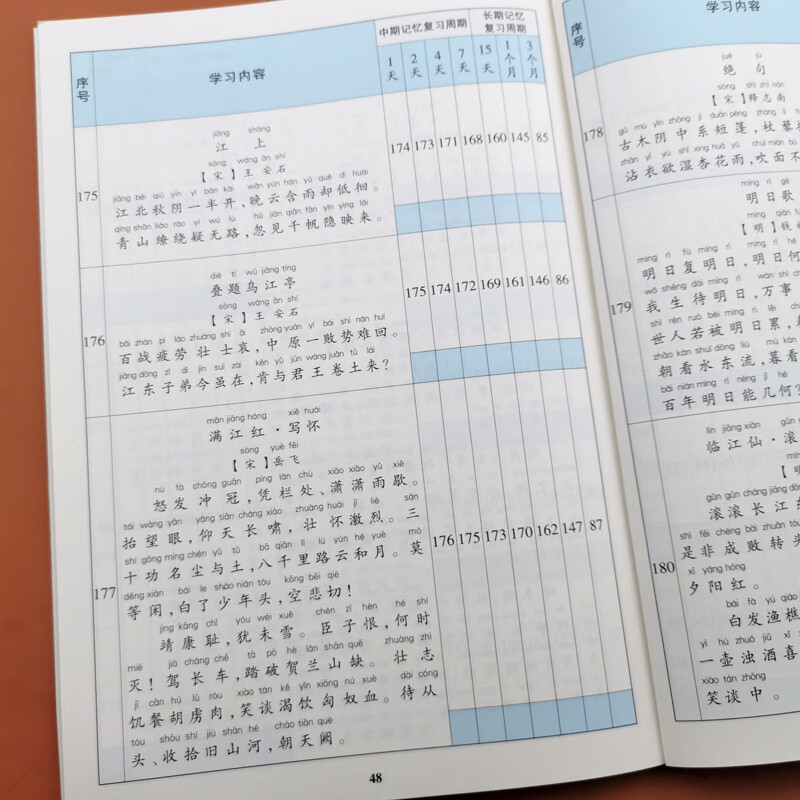 序号
学习内容
中期记忆复习周期
长期记忆复习周期
1天
2天
4天
7天
15天
1个月
3个月
175
jiāng shàng
江 上
sòng wáng ān shí
【宋】王 安 石
jiāng běi qiū yīn yí bàn kāi wǎn yún hán yǔ què dī huái
江北秋阴一半开，晚云含雨却低徊。
qīng shān liáo rào yí wú lù hū jiàn qiān fān yǐn yìng lái
青山缭绕疑无路，忽见千帆隐映来。
174 173 171 168 160 145 85
176
dié tí wū jiāng tíng
叠题乌江亭
sòng wáng ān shí
【宋】王 安石
bǎi zhàn pí láo zhuàng shì āi zhōng yuán yí bài shì nán huí
百战疲劳壮士哀，中原一败势难回。
jiāng dōng zǐ dì jīn suī zài kěn yǔ jūn wáng juǎn tǔ lái
江东子弟今虽在，肯与君王卷土来？
175 174 172 169 161 146 86
177
mǎn jiāng hóng xiě huái
满江红·写怀
sòng yuè fēi
【宋】岳飞
nù fà chōng guān píng lán chù xiāo xiāo yǔ xiē
怒发冲冠，凭栏处、潇潇雨歇。
tái wàng yǎn yǎng tiān cháng xiào zhuàng huái jī liè sān
抬望眼，仰天长啸，壮怀激烈。三
shí gōng míng chén yǔ tǔ bā qiān lǐ lù yún hé yuè mò
十功名尘与土，八千里路云和月。莫
děng xián bái le shào nián tóu kōng bēi qiè
等闲，白了少年头，空悲切！
jìng kāng chǐ yóu wèi xuě chén zǐ hèn hé shí
靖康耻，犹未雪。臣子恨，何时
miè jià cháng chē tà pò hè lán shān quē zhuàng zhì
灭！驾长车，踏破贺兰山缺。壮志
jī cān hú lǔ ròu xiào tán kě yǐn xiōng nú xuè dài cóng
饥餐胡虏肉，笑谈渴饮匈奴血。待从
tóu shōu shí jiù shān hé cháo tiān què
头、收拾旧山河，朝天阙。
176 175 173 170 162 147 87
48
序号
学习内容
178
jué jù
绝 句
sòng shì zhì nán
【宋】释志南
gǔ mù yīn zhōng jì duǎn péng zhàng lí
古木阴中系短篷，杖藜
zhān yī yù shī xìng huā yǔ chuī miàn bù
沾衣欲湿杏花雨，吹面不
179
míng rì gē
明日歌
míng qián
【明】钱
míng rì fù míng rì míng rì hé
明日复明日，明日何
wǒ shēng dài míng rì wàn shì
我生待明日，万事
shì rén ruò bèi míng rì lěi
世人若被明日累，
zhāo kàn shuǐ dōng liú mù kàn
朝看水东流，暮看
bǎi nián míng rì néng jǐ hé
百年明日能几何？
180
lín jiāng xiān gǔn
临江仙·滚
gǔn gǔn cháng jiāng
滚滚长江
shì fēi chéng bài zhuǎn tóu
是非成败转头
xī yáng hóng
夕阳红。
bái fà yú qiáo
白发渔樵
yì hú zhuó jiǔ xǐ
一壶浊酒喜
xiào tán zhōng
笑谈中。